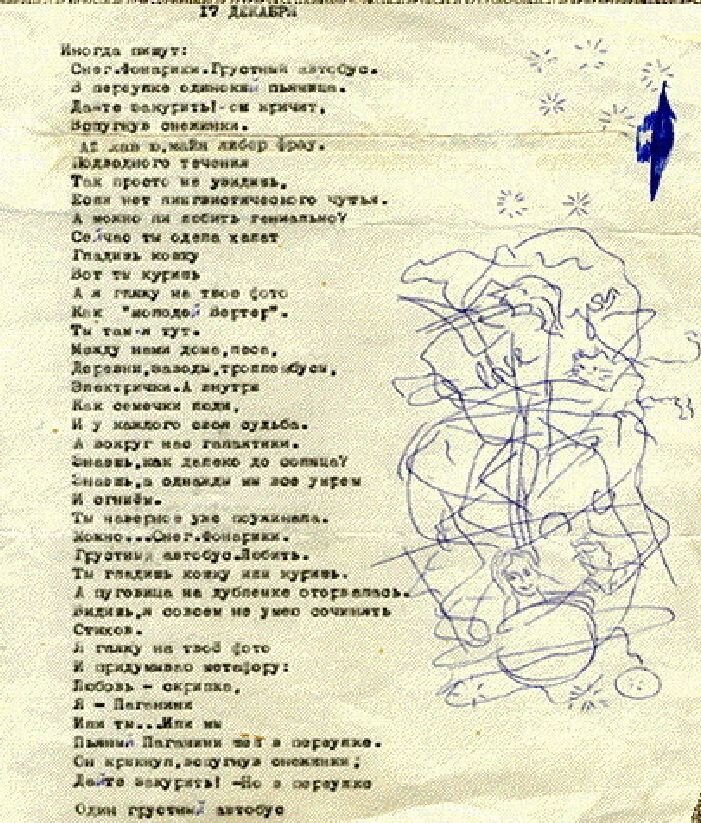 17 ДЕКАБРЯ
Иногда пишут:
Снег.Фонарики.Грустный автобус.
В переулке одинокий пьяница.
Дайте закурить!-он кричит,
Вспугнув снежинки.
Ай лав ю,майн либер фрау.
Подводного течения
Так просто не увидишь,
Если нет лингвистического чутья.
А можно ли любить гениально?
Сейчас ты одела халат
Гладишь кошку
Вот ты куришь
А я гляжу на твое фото
Как "молодой Вертер".
Ты там-я тут.
Между нами дома,леса,
Деревни,заводы,троллейбусы,
Электрички.А внутри
Как семечки люди,
И у каждого своя судьба.
А вокруг нас галактики.
Знаешь,как далеко до солнца?
Знаешь,а однажды мы все умрем
И сгниём.
Ты наверное уже поужинала.
Можно...Снег.Фонарики.
Грустный автобус.Любить.
Ты гладишь кошку или куришь.
А пуговица на дубленке оторвалась.
Видишь,я совсем не умею сочинять
Стихов.
Я гляжу на твоё фото
И придумываю метафору:
Любовь - скрипка,
Я - Паганини
Или ты...Или мы
Пьяный Паганини шёл в переулке.
Он крикнул,вспугнув снежинки;
Дайте закурить! -Но в переулке
Один грустный автобус
love